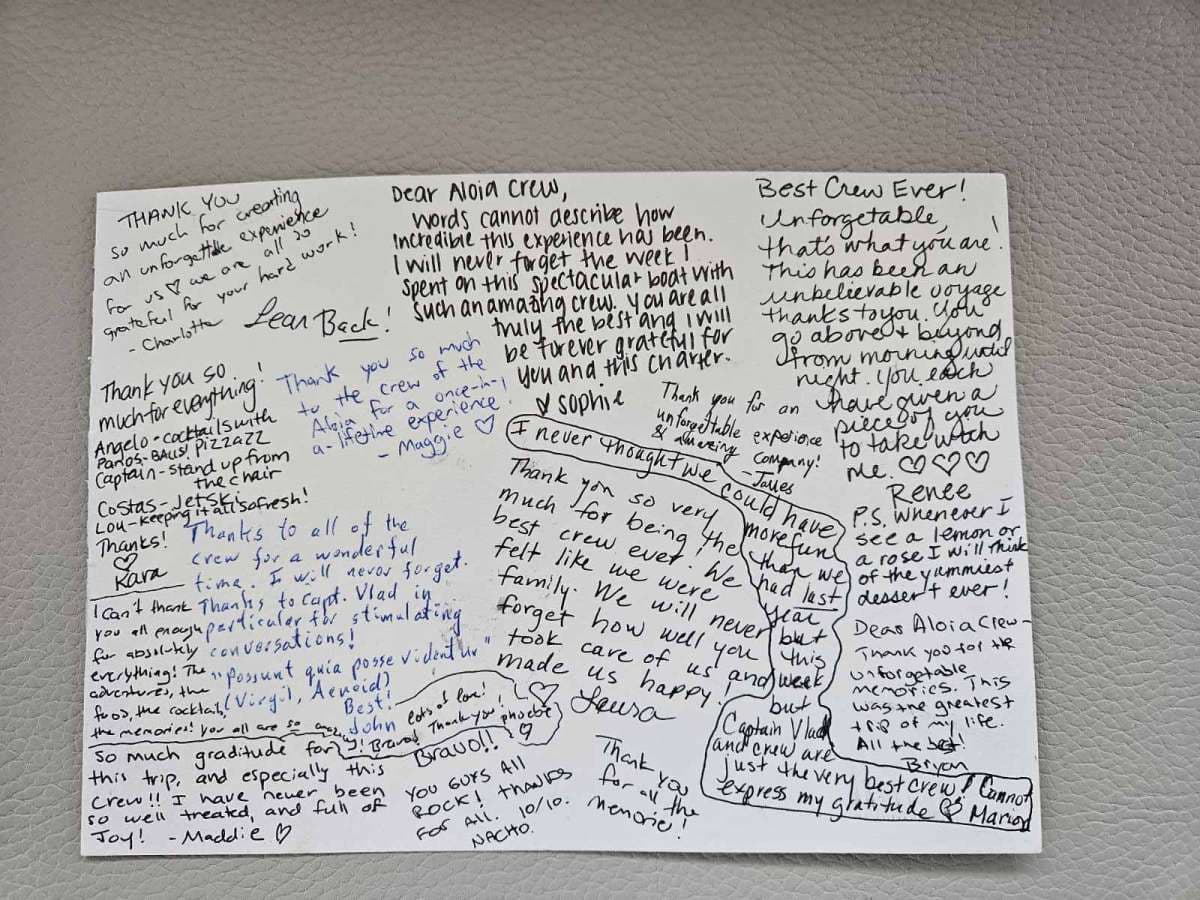 THANK YOU
so much for creating
an unforgettable experience
for us ♡ we are all so
grateful for your hard work!
- Charlotte
Lean Back!
Dear Aloia Crew,
words cannot describe how
incredible this experience has been.
I will never forget the week I
spent on this spectacular boat with
such an amazing crew. You are all
truly the best and I will
be forever grateful for
you and this charter.
♡ sophie
Best Crew Ever!
Unforgetable,
that's what you are!
This has been an
unbelievable voyage
thanks to you. You
go above & beyond
from morning until
night. You each
have given a
piece of you
to take with
me. ♡♡♡
Renee
P.S. Whenever I
see a lemon or
a rose I will think
of the yummiest
dessert ever!
Thank you so
much for everything!
Angelo - cocktails with
Panos - BALLS! PIZZAZZ
Captain - stand up from
the chair
Costas - Jetski
Lou - keeping it all so fresh!
Thanks!
♡
Kara
Thank you so much
to the crew of the
Aloia for a once-in-
a-lifetime experience!
- Maggie ♡
Thank you for an
unforgettable experience
& amazing company!
- James
I never thought we could have
more fun
than we
had last
year
but
this
week
but
Captain Vlad
and crew are
just the very best crew! Cannot
express my gratitude ♡ Marion
Thank you so very
much for being the
best crew ever! We
felt like we were
family. We will never
forget how well you
took care of us and
made us happy!
♡ Laura
Thanks to all of the
crew for a wonderful
time. I will never forget.
Thanks to Capt. Vlad in
particular for stimulating
conversations!
"Possunt quia posse videntur"
(Virgil, Aeneid)
Best!
John
I can't thank
you all enough
for absolutely
everything! The
adventures, the
food, the cocktail,
the memories! You all are so
Bravo! Thank you!
Lots of love!
phoebe
♡
Dear Aloia Crew -
Thank you for the
unforgetable
memories. This
was the greatest
trip of my life.
All the best!
Bryan
So much graditude for
this trip, and especially this
crew!! I have never been
so well treated, and full of
Joy! - Maddie ♡
Bravo!!
YOU GUYS All
ROCK! THANKS
FOR All. 10/10.
NACHO.
Thank you
for all the
memorie!